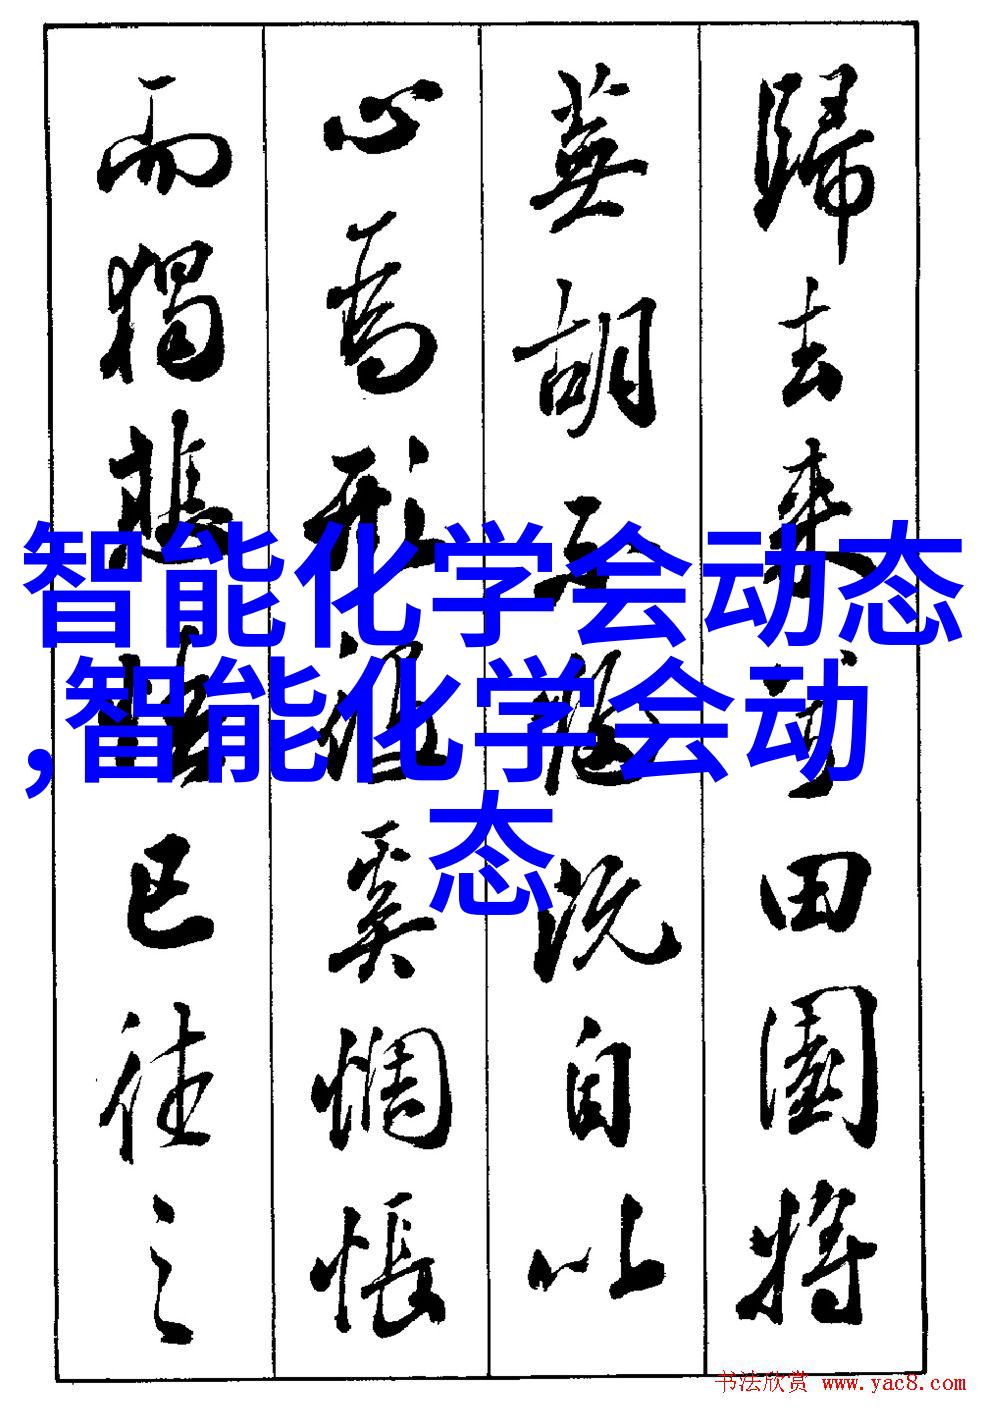 歸去來兮田園將
蕪胡不歸既自以
心為形役奚惆悵
而獨悲悟已往之
智能化学会动态
,智能化学会动
态
书法欣赏 www.yac8.com